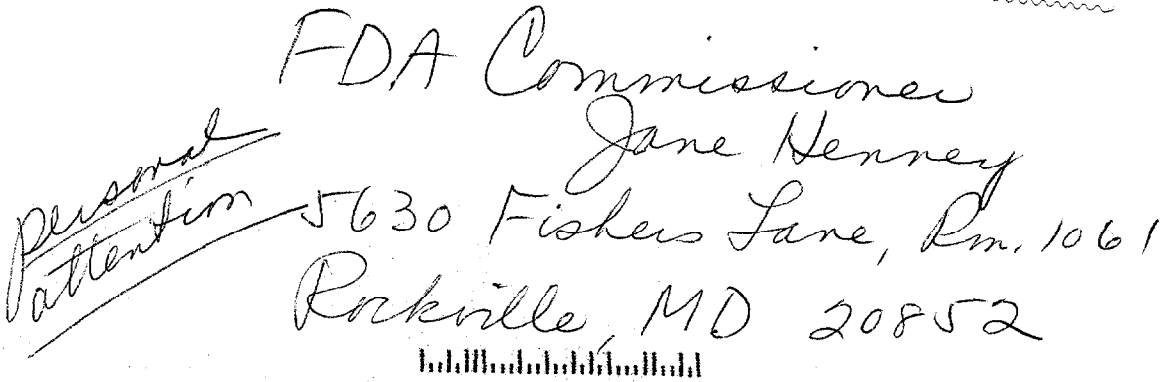 FDA Commissioner
Jane Henney
personal
attention
5630 Fishers Lane, Rm. 1061
Rockville, MD 20852